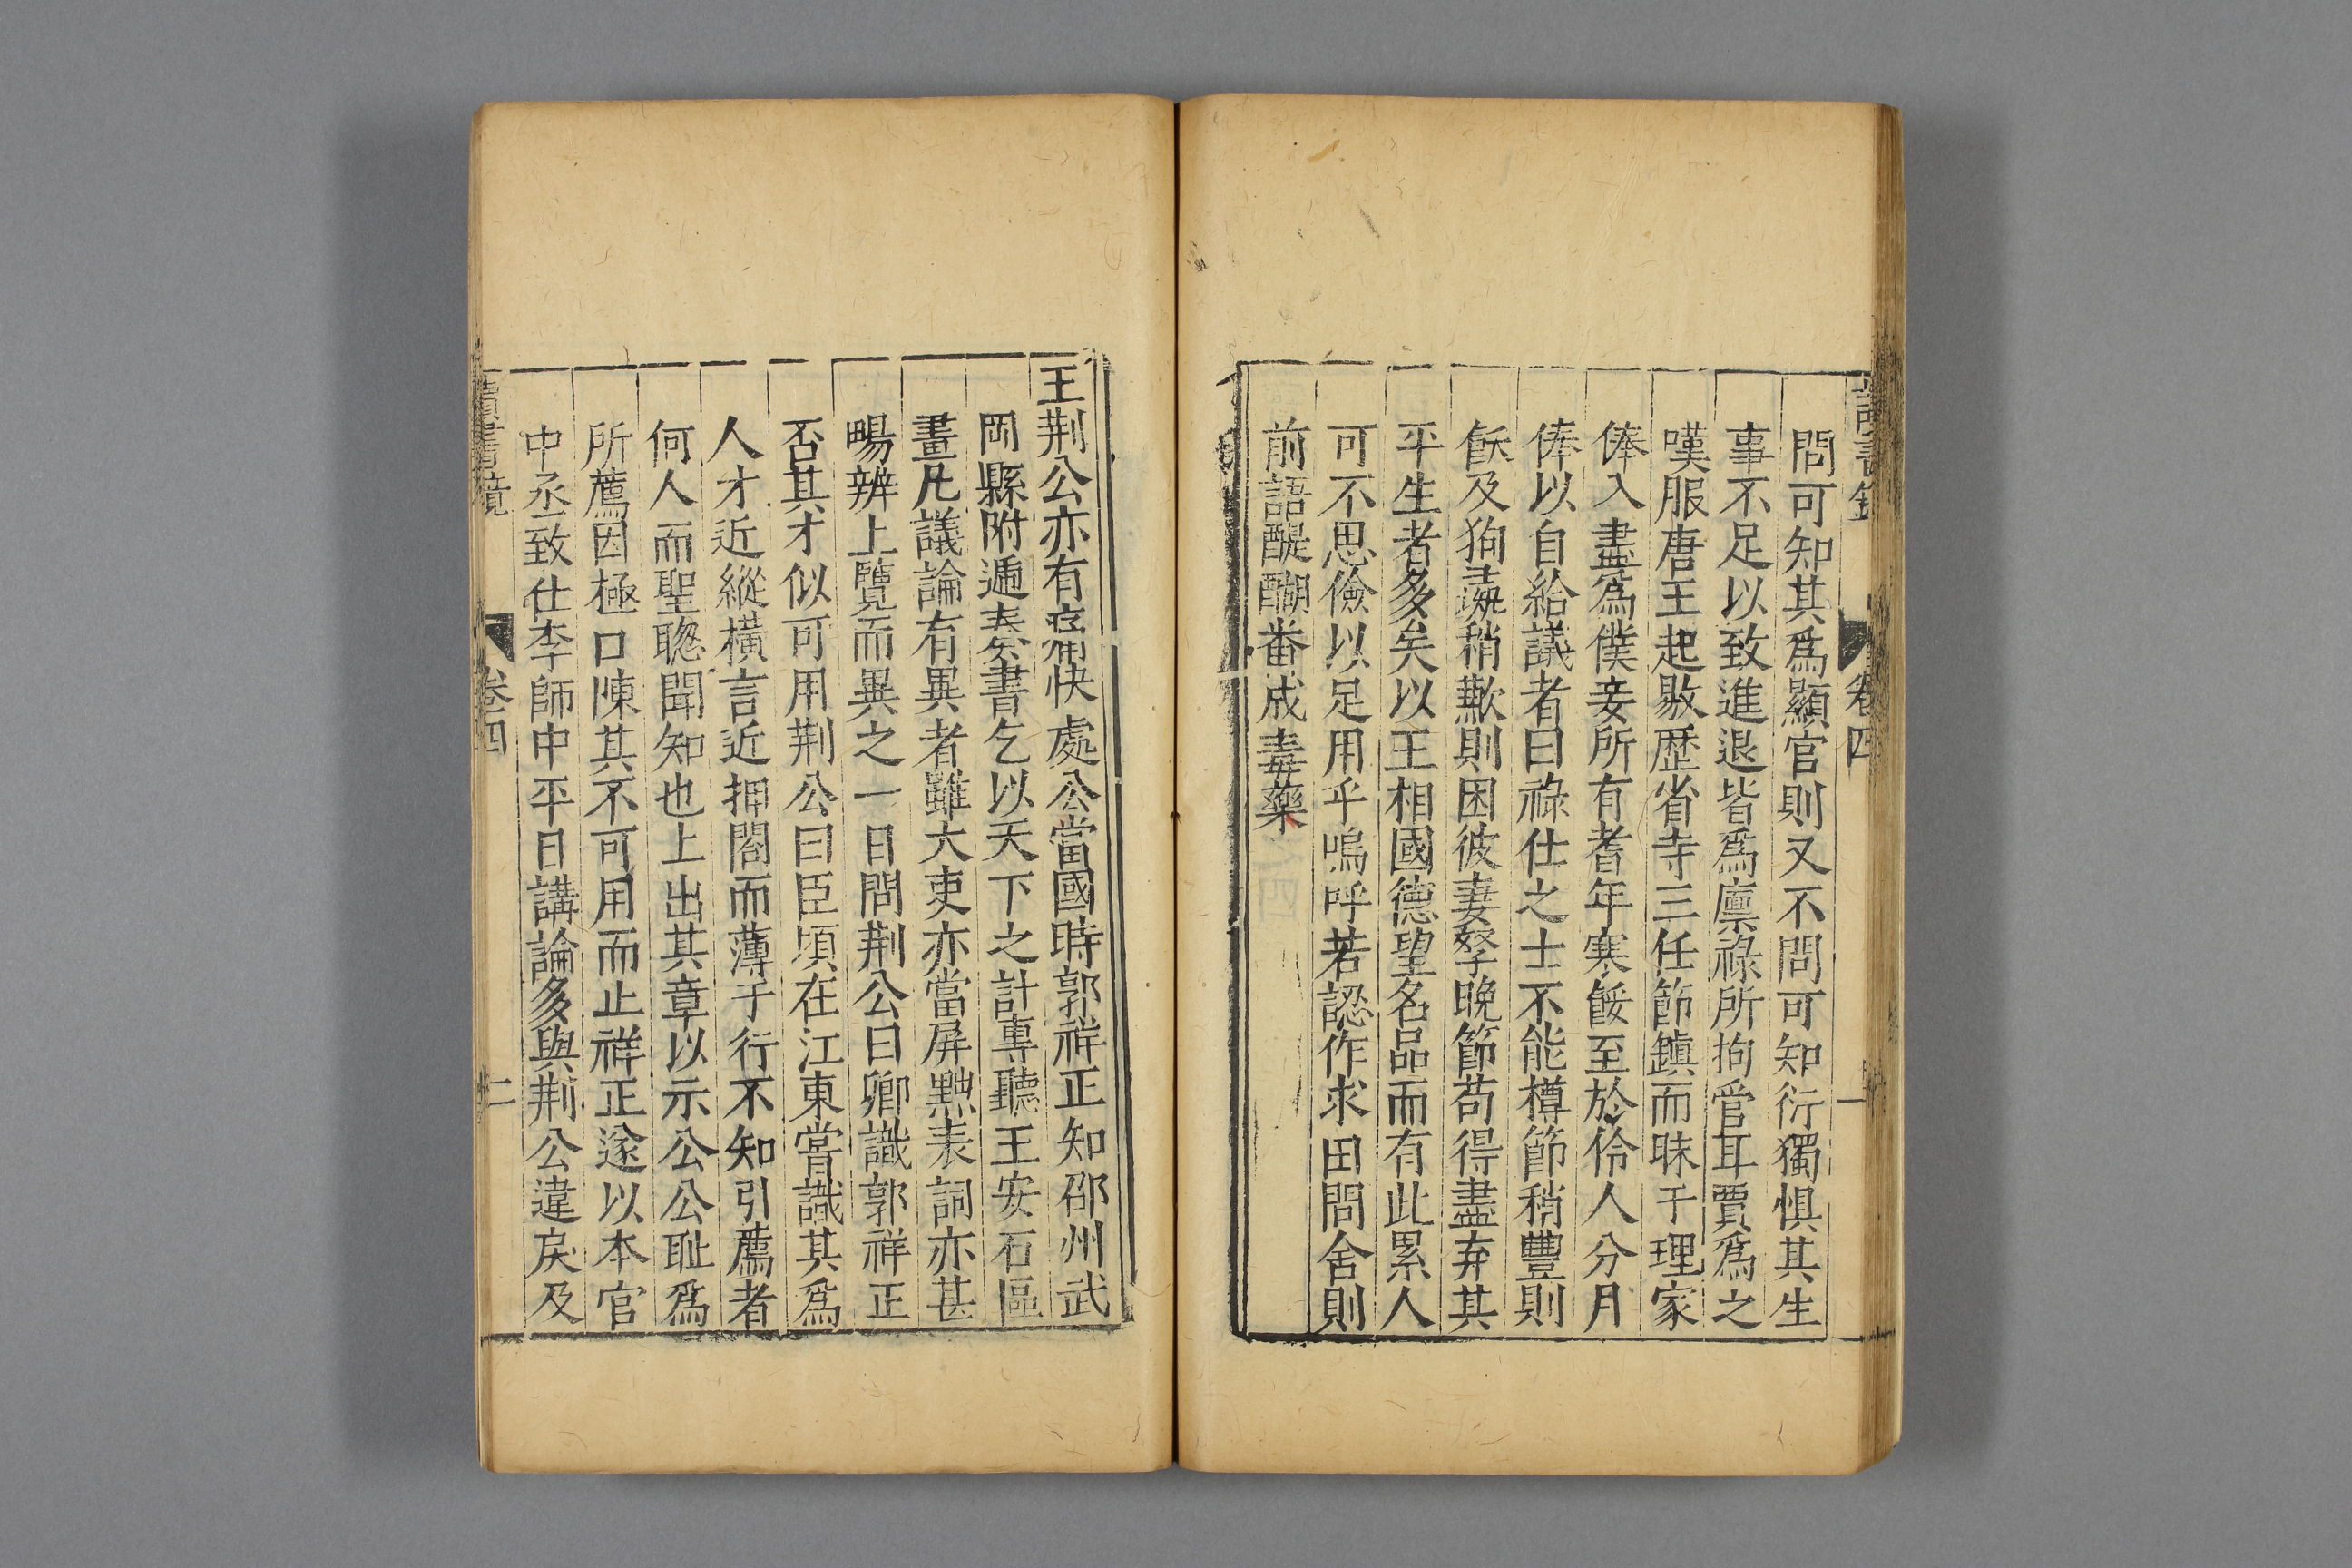 讀書鏡 卷四 一
問可知其爲顯官則又不問可知衍獨懼其生
事不足以致進退皆爲廪祿所拘管耳賈爲之
嘆服唐王起敭歷省寺三任節鎮而昧于理家
俸入盡爲僕妾所有耆年寒餒至於伶人分月
俸以自給議者曰祿仕之士不能樽節稍豐則
飫及狗彘稍歉則困彼妻孥晚節苟得盡弃其
平生者多矣以王相國德望名品而有此累人
可不思儉以足用乎嗚呼若認作求田問舍則
前語醍醐番成毒藥
王荆公亦有痛快處公當國時郭祥正知邵州武
岡縣附遞奏書乞以天下之計專聽王安石區
畫凡議論有異者雖大吏亦當屏黜表詞亦甚
暢辨上覽而異之一日問荆公曰卿識郭祥正
否其才似可用荆公曰臣頃在江東嘗識其爲
人才近縱橫言近押闔而薄于行不知引薦者
何人而聖聰聞知也上出其章以示公公耻爲
所薦因極口陳其不可用而止祥正遂以本官
中丞致仕李師中平日講論多與荆公違戾及
讀書鏡 卷四 二